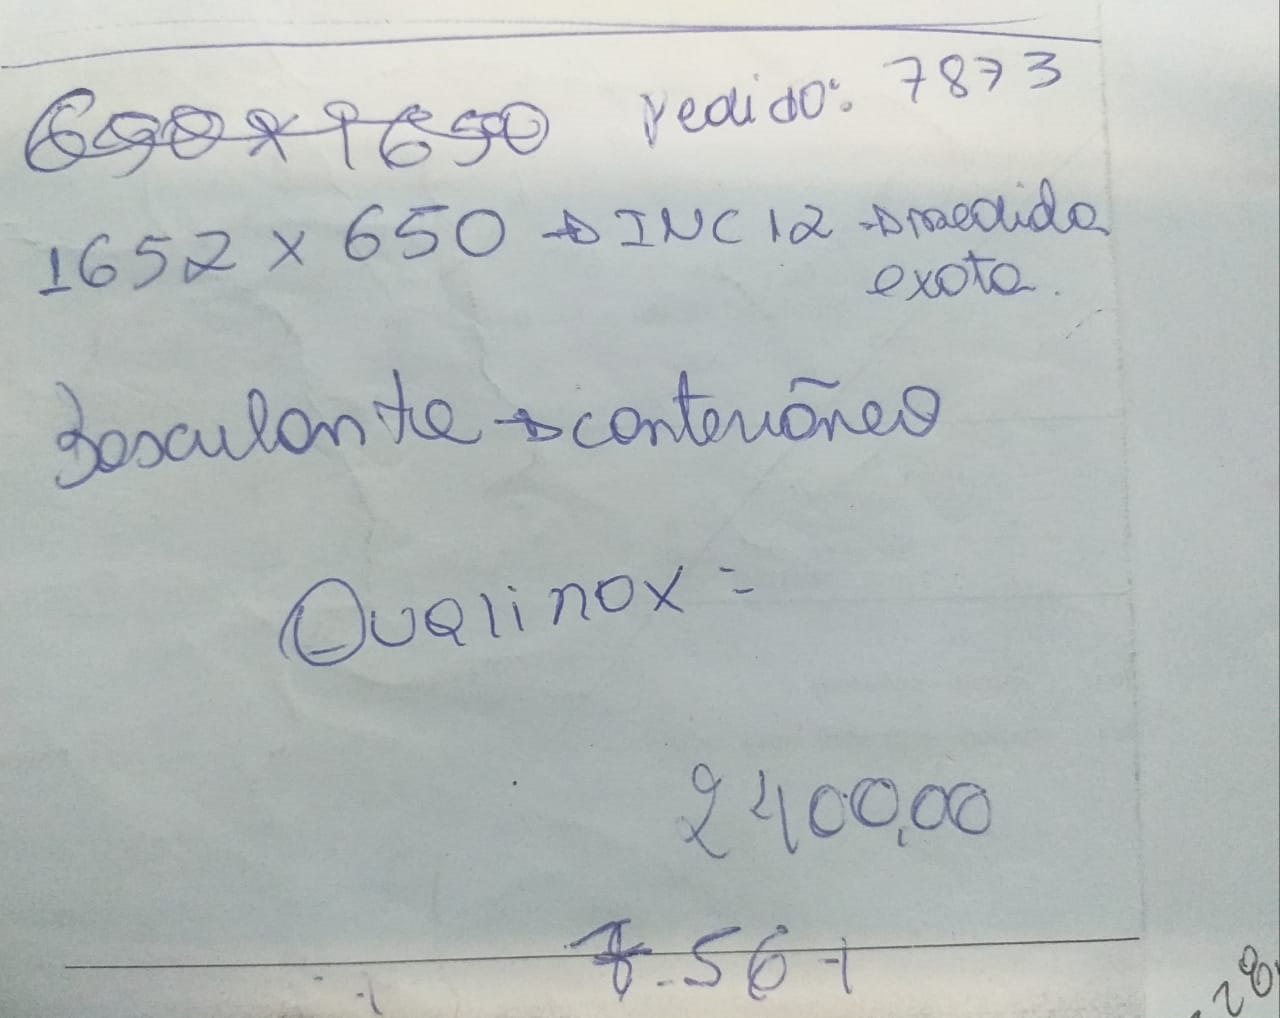 650 x 1650 Pedido: 7873
1652 x 650 → INC 12 → medida
exata.
Basculante → conterrâneo
Qualinox =
2400,00
7.561
28